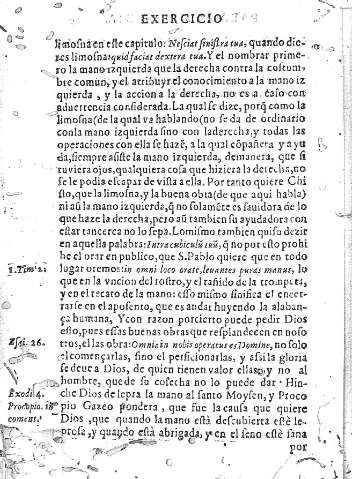 EXERCICIO
limosna en este capitulo: Nesciat sinistra tua, quando die-
res limosna: quid faciat dextera tua. Y el nombrar prime-
ro la mano izquierda que la derecha contra la costum-
bre comun, y el atribuyr el conocimiento a la mano iz
quierda, y la accion a la derecha, no es a caso con
aduertencia considerada. La qual se dize, porq̃ como la
limosna (de la qual va hablando) no se da de ordinario
con la mano izquierda sino con la derecha, y todas las
operaciones con ella se hazẽ, a la qual cõpañera y ayu
da, siempre assiste la mano izquierda, de manera, que si
tuviera ojos, qualquiera cosa que hiziera la derecha, no
se le podis escapar de vista a ella. Por tanto quiere Chri
sto, que la limosna, y la buena obra (de que aqui habla)
ni aũ la mano izquierda, q̃ no solamẽte es sauidora de lo
que haze la derecha, pero aũ tambien su ayudadora con
estar tan cerca no lo sepa. Lo mismo tambien quiso dezir
en aquella palabra: Intra cubiculũ tuũ, q̃ no por esto prohi
be el orar en publico, que S. Pablo quiere que en todo
1. Tim. 2.
lugar oremos: in omni loco orate, leuantes puras manus, lo
que en la vncion del rostro, y el tañido de la trompeta,
y en el recato de la mano: esso mismo sinifica el encer-
rarse en el aposento, que es andar huyendo la alaban-
ça humana, Y con razon por cierto puede pedir Dios
esto, pues essas buenas obras que resplandecen en noso
Esai. 26.
tros, el las obra: Omnia in nobis operatus es Domine, no solo
el començarlas, sino el perficionarlas, y assi la gloria
se deue a Dios, de quien tienen valor ellas, y no al
hombre, que de su cosecha no lo puede dar. Hin-
Exodi 4.
che Dios de lepra la mano al santo Moysen, y Proco
Procopio. in
pio Gazeo pondera, que fue la causa que quiere
coment.
Dios, que quando la mano està descubierta estè le-
prosa, y quando està abrigada, y en el seno estè sana
por